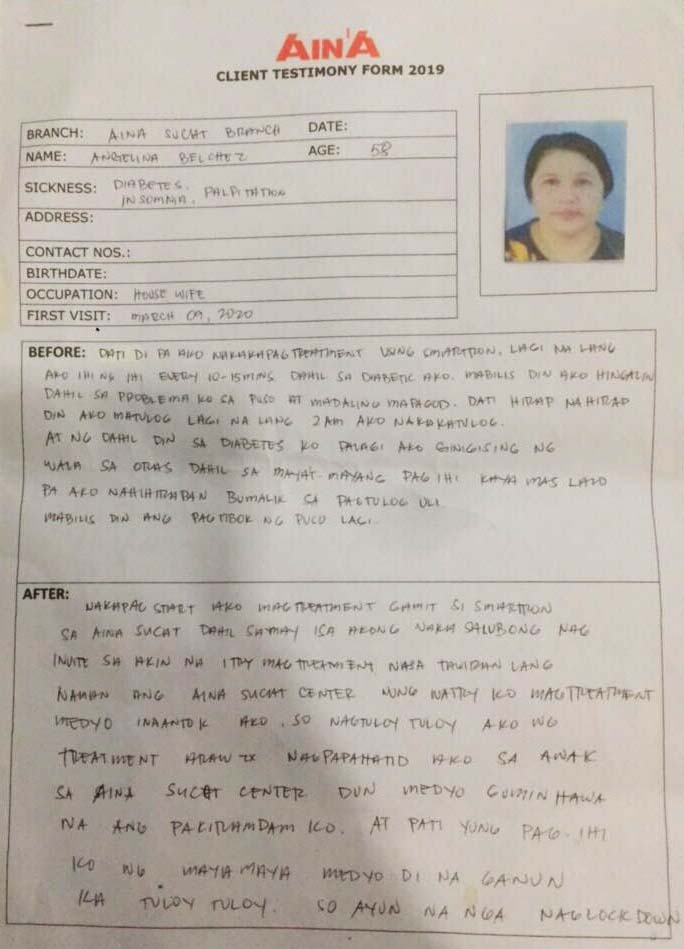 AIN'A
CLIENT TESTIMONY FORM 2019
BRANCH: AINA SUCAT BRANCH DATE:
NAME: ANGELINA BELCHEZ AGE: 58
SICKNESS: DIABETES,
INSOMNIA, PALPITATION
ADDRESS:
CONTACT NOS.:
BIRTHDATE:
OCCUPATION: HOUSE WIFE
FIRST VISIT: MARCH 09, 2020
BEFORE: DATI DI PA AKO NAKAKAPAG TREATMENT USING SMARTTRON. LAGI NA LANG
AKO IHI NG IHI EVERY 10-15MINS DAHIL SA DIABETIC AKO. MABILIS DIN AKO HINGALIN
DAHIL SA PROBLEMA KO SA PUSO AT MADALING MAPAGOD. DATI HIRAP NA HIRAP
DIN AKO MATULOG LAGI NA LANG 2AM AKO NAKAKATULOG.
AT NG DAHIL DIN SA DIABETES KO PALAGI AKO GINIGISING NG
WALA SA ORAS DAHIL SA MAYAT-MAYANG PAG IHI KAYA MAS LALO
PA AKO NAHIHIRAPAN BUMALIK SA PAGTULOG ULI.
MABILIS DIN ANG PAGTIBOK NG PUSO LAGI.
AFTER: NAKAPAG START AKO MAGTREATMENT GAMIT SI SMARTTRON
SA AINA SUCAT DAHIL SA MAY ISA AKONG NAKA SALUBONG NAG
INVITE SA AKIN NA ITRY MAG TREATMENT, NASA TAWIRAN LANG
NAMAN ANG AINA SUCAT CENTER NUNG NATRY KO MAGTTREATMENT
MEDYO INAANTOK AKO, SO NAGTULOY TULOY AKO NG
TREATMENT ARAW 2X NAGPAPAHATID AKO SA ANAK
SA AINA SUCAT CENTER DUN MEDYO GUMINHAWA
NA ANG PAKIRAMDAM KO. AT PATI YUNG PAG-IHI
KO NG MAYA MAYA MEDYO DI NA GANUN
KA TULOY TULOY. SO AYUN NA NGA NAGLOCKDOWN